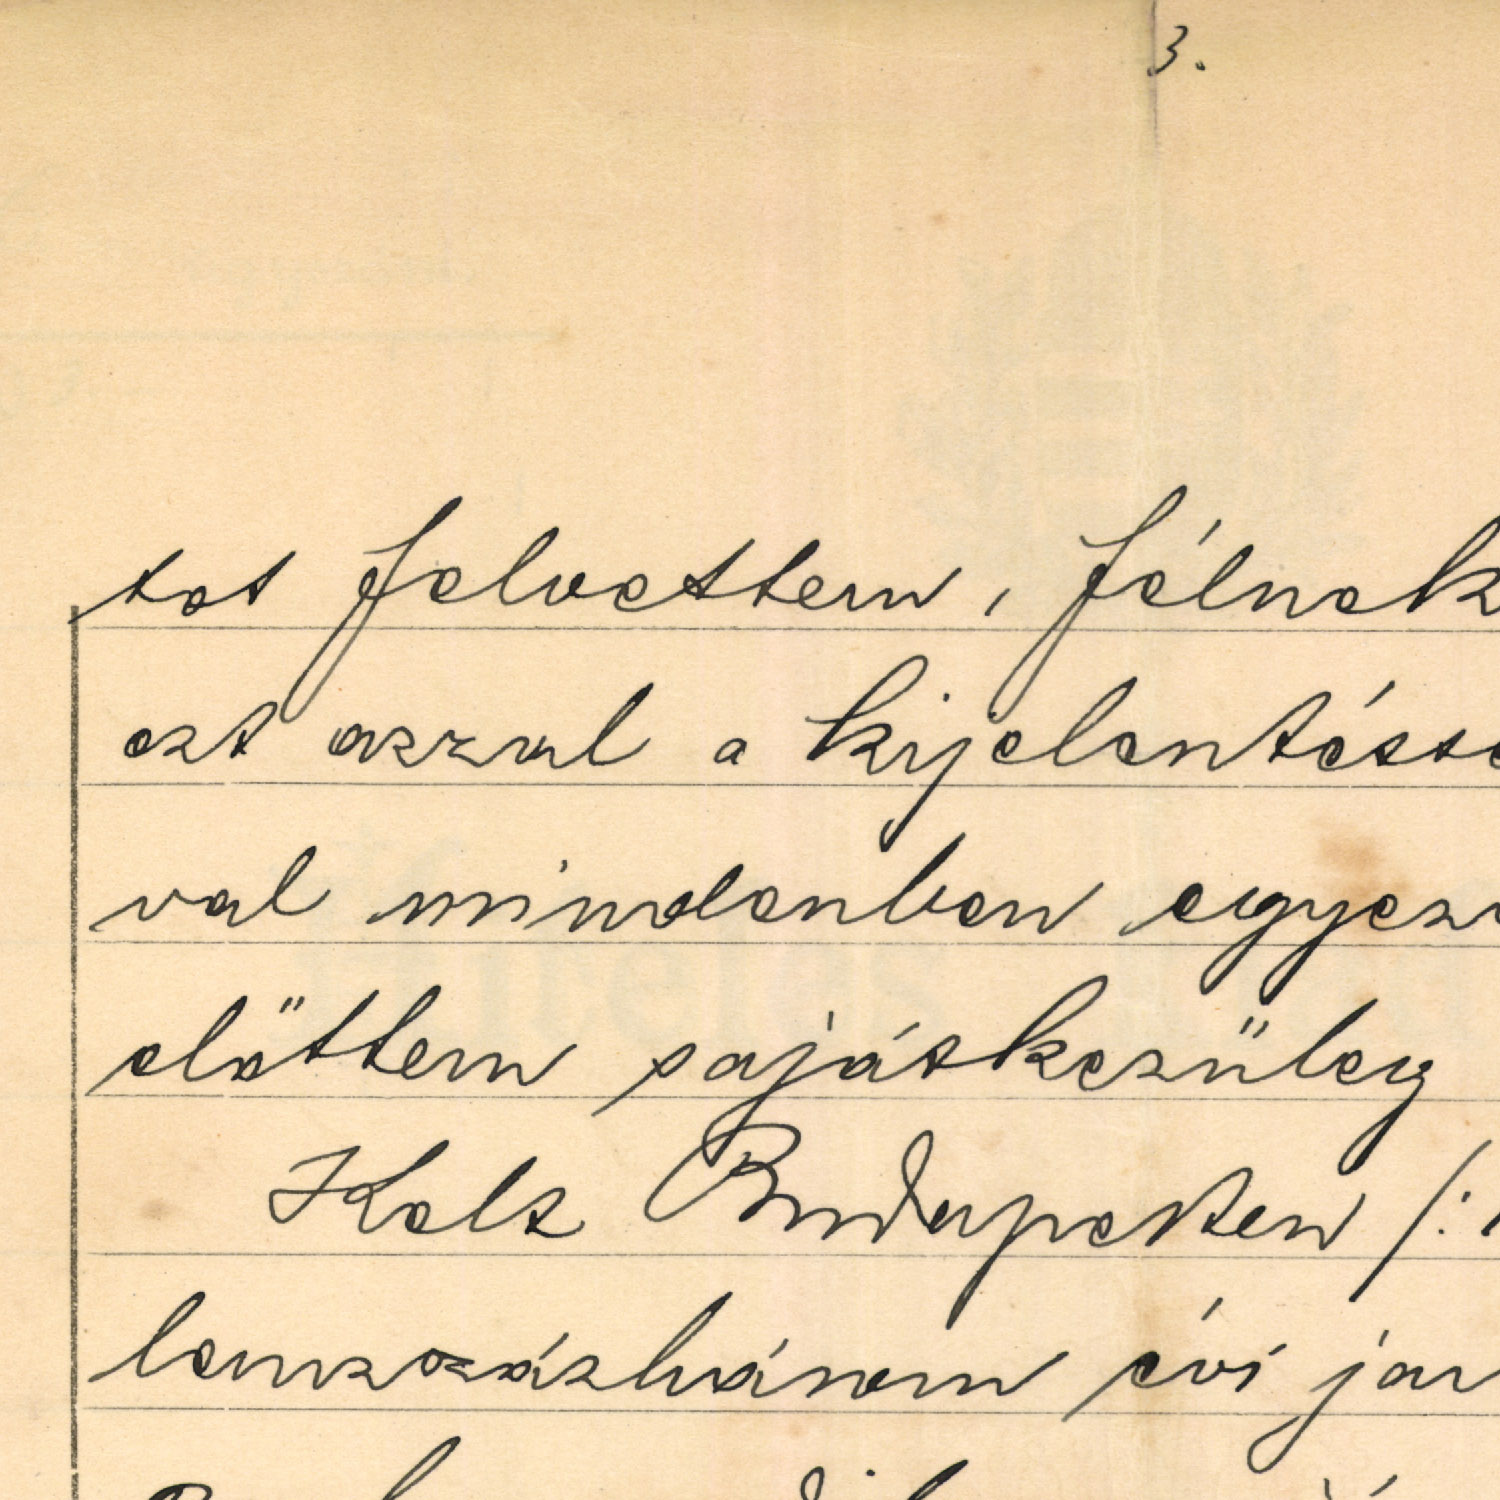 3.
tet felvettem, félnek
ezt azzal a kijelentésse
val mindenben egyez
előttem sajátkezüleg
Kelt Budapesten /:
lenszázhárom évi jan